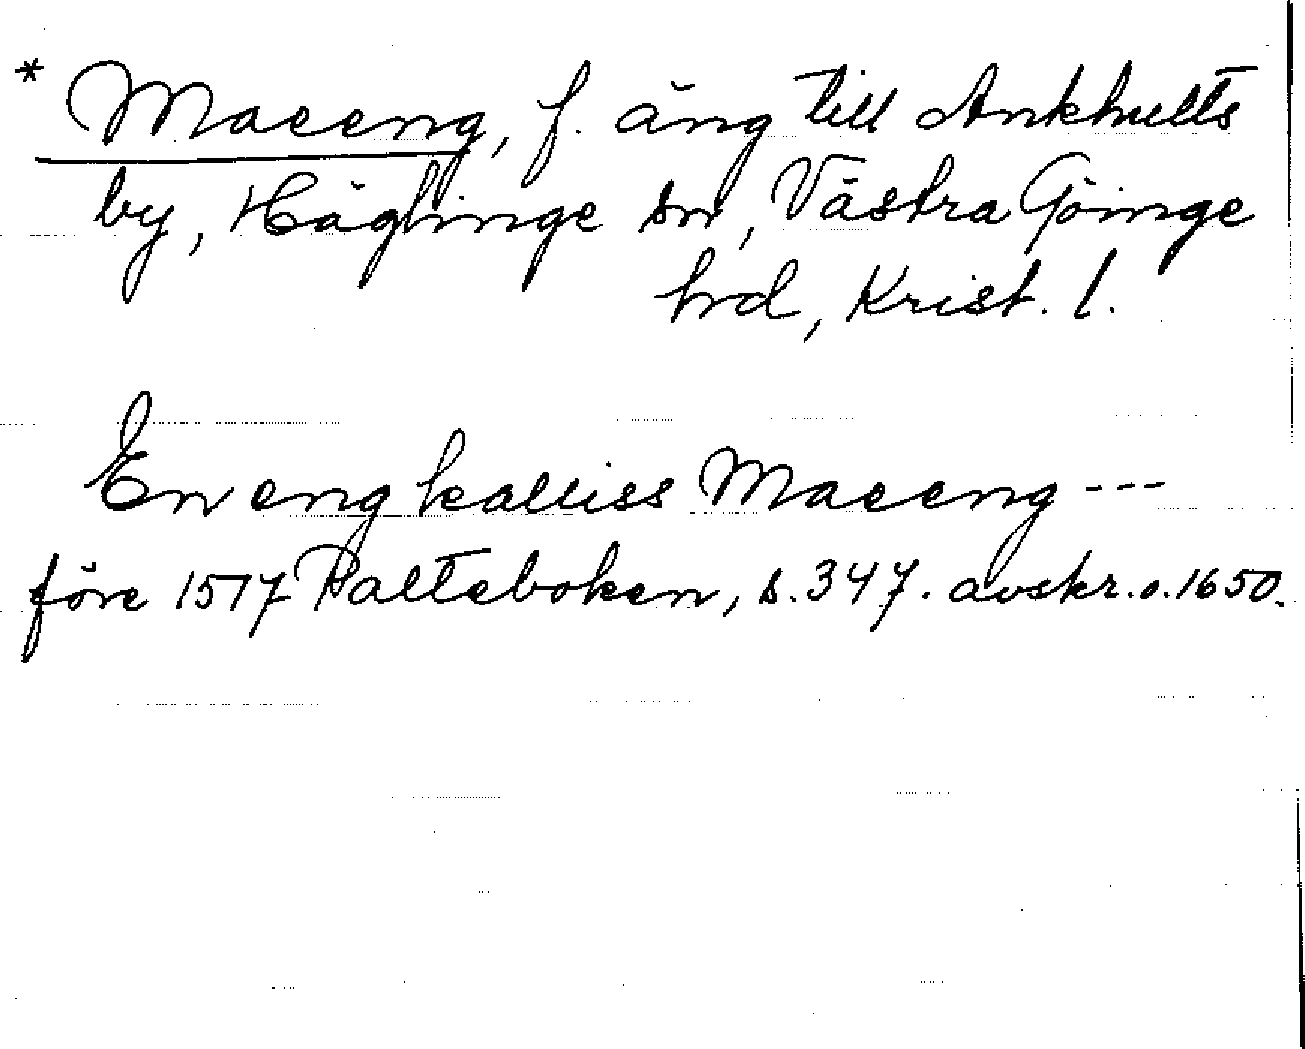 * Maeeng, f. äng till Ankhults
by, Häglinge sn, Västra Göinge
hrd, Krist. l.
En eng kalliss Maeeng ---
före 1517 Palteboken, s. 347. avskr. o. 1650.